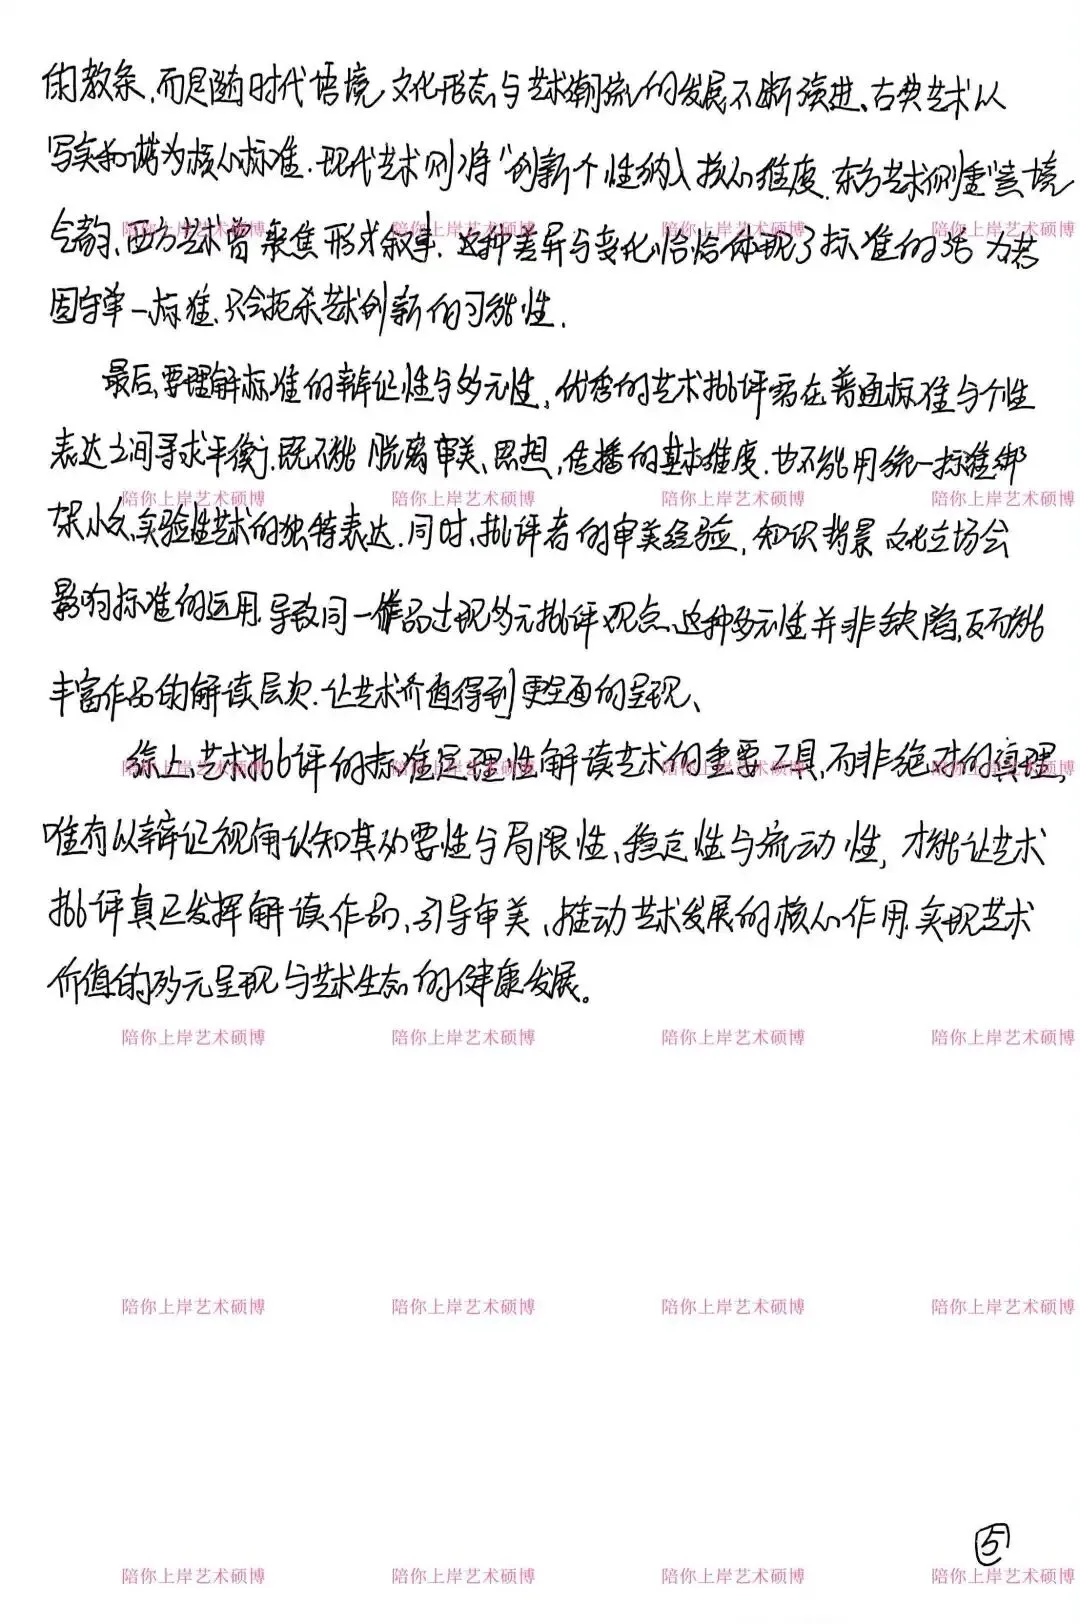 的教条,而是随时代语境、文化形态与艺术潮流的发展不断演进、古典艺术以
写实和谐为核心标准.现代艺术则将"创新个性纳入核心维度.东方艺术侧重"意境
气韵、西方艺术曾聚焦形式叙事.这种差异与变化,恰恰体现了标准的活力.若
固守单一标准、只会扼杀艺术创新的可能性.
最后,要理解标准的辩证性与多元性,优秀的艺术批评需在普通标准与个性
表达之间寻求平衡,既不能脱离审美、思想、传播的基本维度.也不能用统一标准绑
架小众,实验性艺术的独特表达.同时,批评者的审美经验,知识背景文化立场会
影响标准的运用,导致同一作品出现多元批评观点、这种多元性并非缺陷,反而能
丰富作品的解读层次.让艺术价值得到更全面的呈现、
综上,艺术批评的标准是理性解读艺术的重要工具,而非绝对的真理,
唯有以辩证视角认知其必要性与局限性、稳定性与流动性,才能让艺术
批评真正发挥解读作品、引导审美、推动艺术发展的核心作用,实现艺术
价值的多元呈现与艺术生态的健康发展。
陪你上岸艺术硕博 陪你上岸艺术硕博 陪你上岸艺术硕博 陪你上岸艺术硕博
陪你上岸艺术硕博 陪你上岸艺术硕博 陪你上岸艺术硕博 陪你上岸艺术硕博
陪你上岸艺术硕博 陪你上岸艺术硕博 陪你上岸艺术硕博 陪你上岸艺术硕博
陪你上岸艺术硕博 陪你上岸艺术硕博 陪你上岸艺术硕博 陪你上岸艺术硕博
陪你上岸艺术硕博 陪你上岸艺术硕博 陪你上岸艺术硕博 陪你上岸艺术硕博
5
陪你上岸艺术硕博 陪你上岸艺术硕博 陪你上岸艺术硕博 陪你上岸艺术硕博